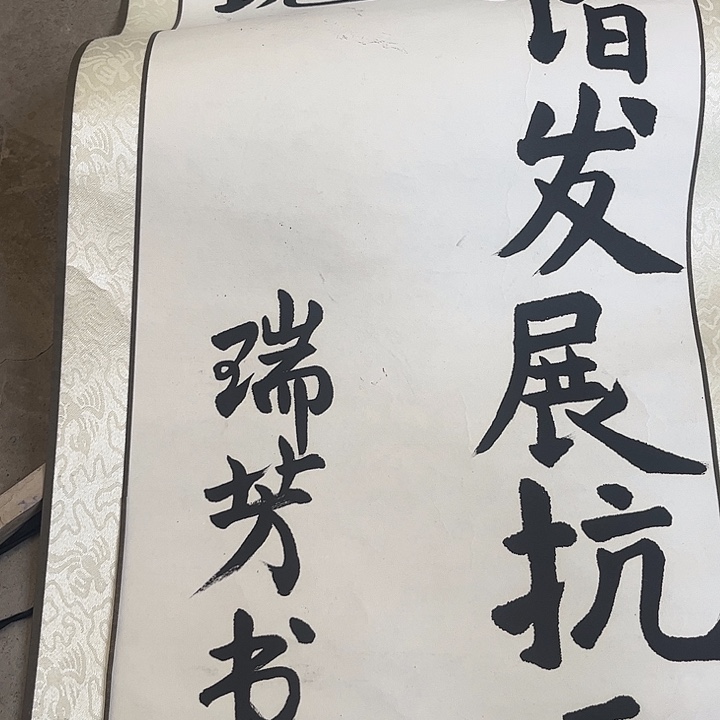 发展抗
瑞芳书